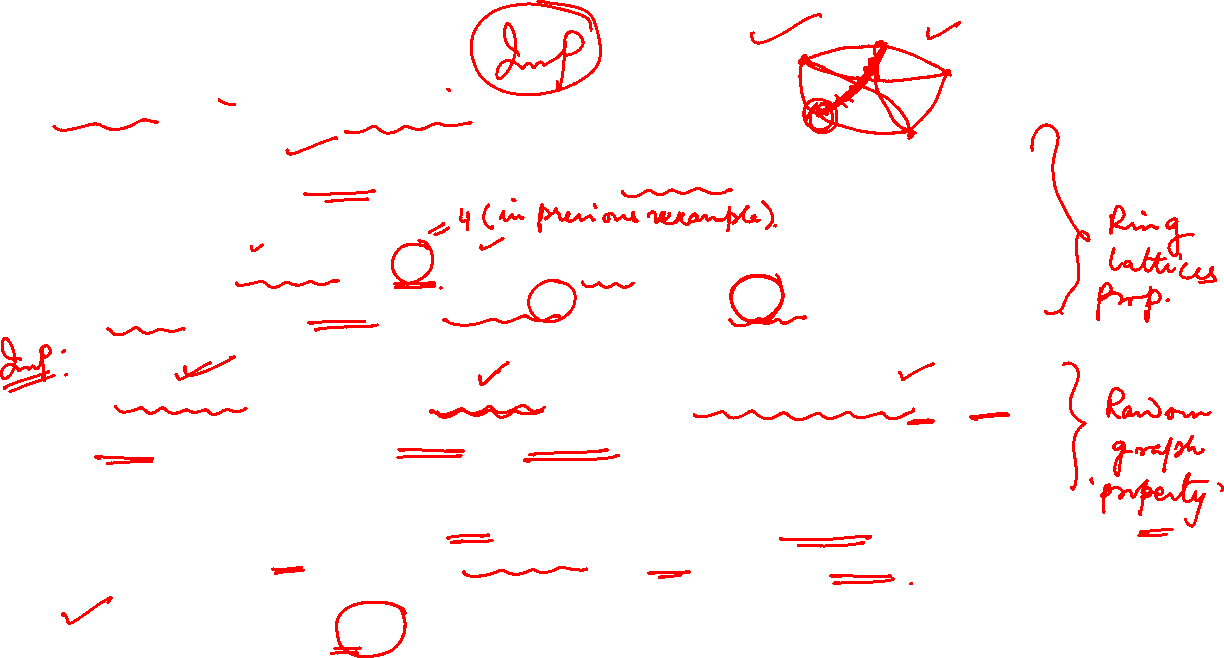 Imp
= 4 (in previous example).
Ring
lattices
prop.
Imp:
Random
graph
'property'